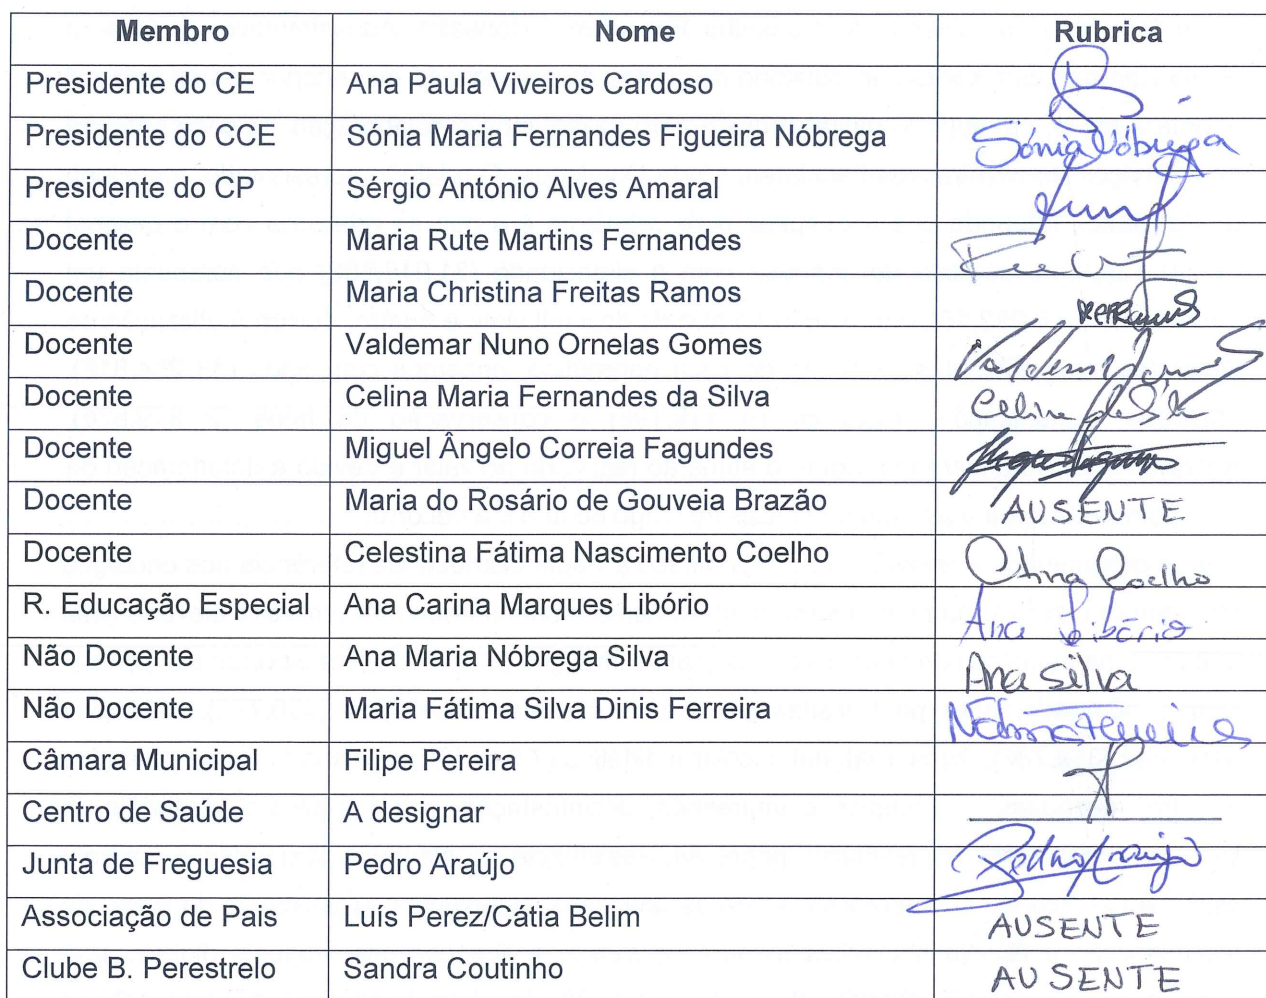 Membro Nome Rubrica
Presidente do CE Ana Paula Viveiros Cardoso
Presidente do CCE Sónia Maria Fernandes Figueira Nóbrega Sónia Nóbrega
Presidente do CP Sérgio António Alves Amaral
Docente Maria Rute Martins Fernandes
Docente Maria Christina Freitas Ramos
Docente Valdemar Nuno Ornelas Gomes Valdemar Gomes
Docente Celina Maria Fernandes da Silva Celina da Silva
Docente Miguel Ângelo Correia Fagundes
Docente Maria do Rosário de Gouveia Brazão AUSENTE
Docente Celestina Fátima Nascimento Coelho Coelho
R. Educação Especial Ana Carina Marques Libório Ana Libório
Não Docente Ana Maria Nóbrega Silva Ana Silva
Não Docente Maria Fátima Silva Dinis Ferreira
Câmara Municipal Filipe Pereira
Centro de Saúde A designar
Junta de Freguesia Pedro Araújo Pedro Araújo
Associação de Pais Luís Perez/Cátia Belim AUSENTE
Clube B. Perestrelo Sandra Coutinho AUSENTE